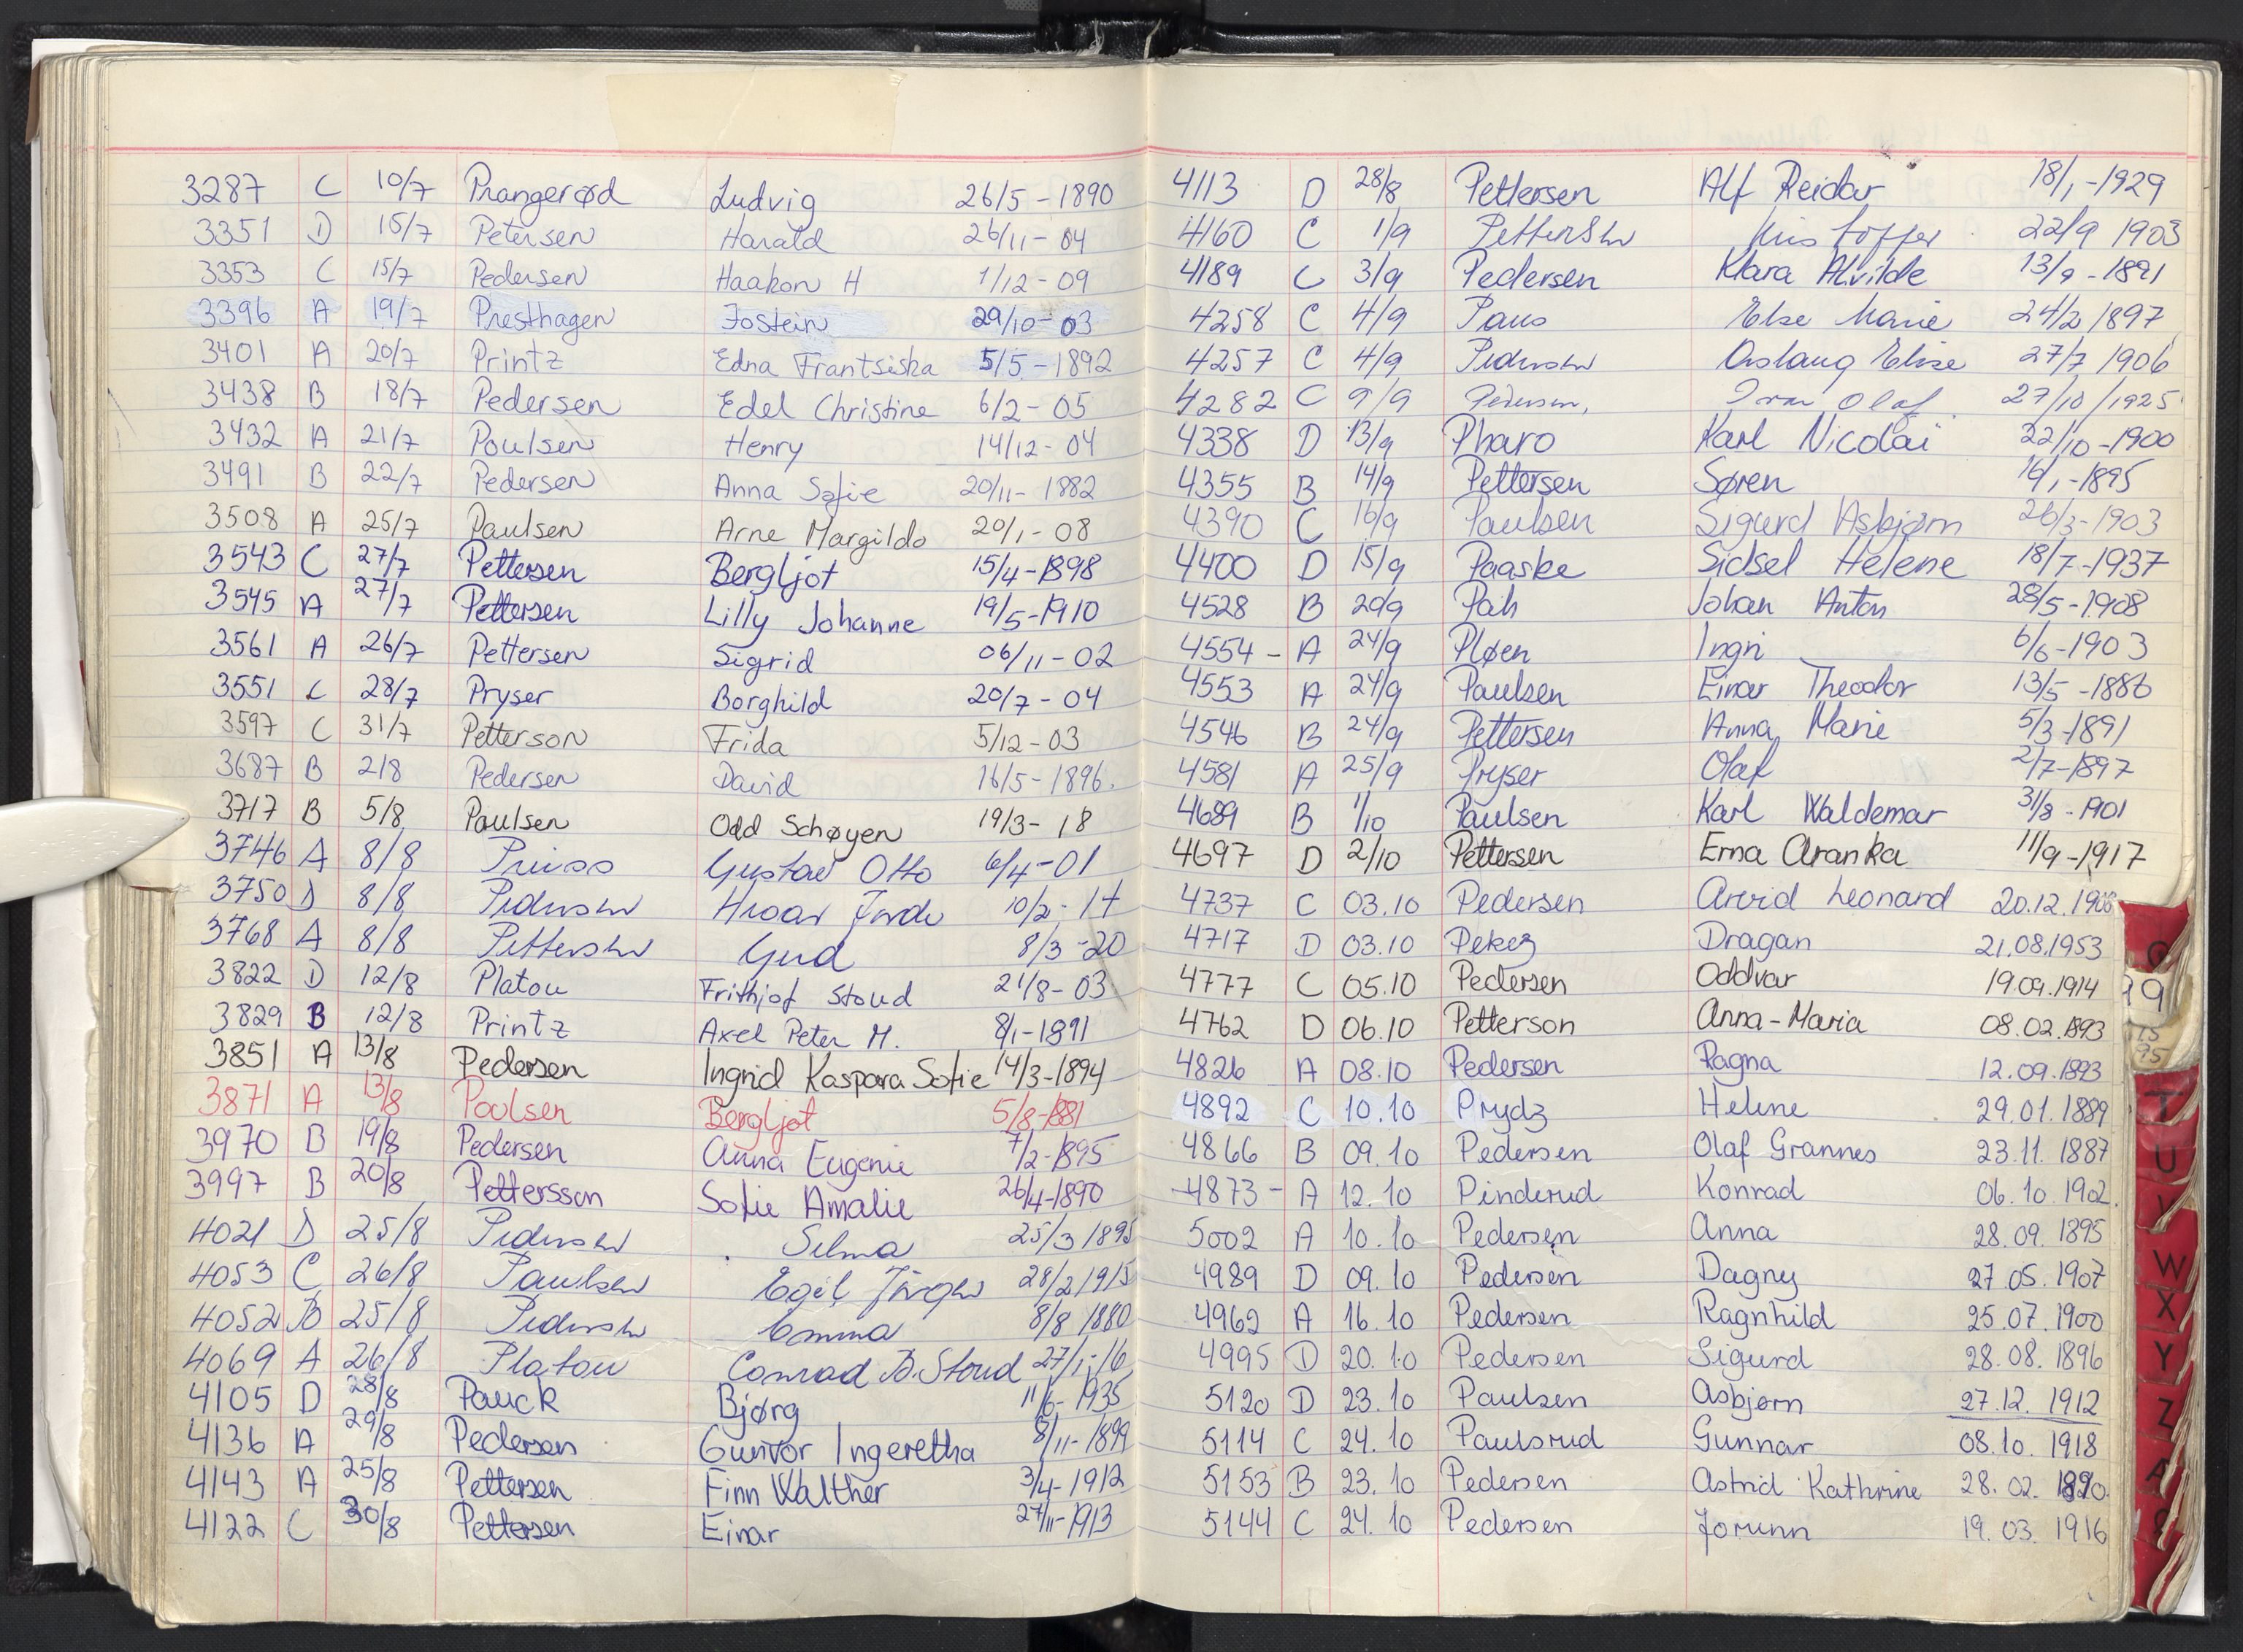 3287 C 10/7 Prangerød Ludvig 26/5-1890
3351 D 15/7 Petersen Harald 26/11-04
3353 C 15/7 Pedersen Haakon H 1/12-09
3396 A 19/7 Presthagen Jostein 29/10-03
3401 A 20/7 Printz Edna Frantsiska 5/5-1892
3438 B 18/7 Pedersen Edel Christine 6/2-05
3432 A 21/7 Poulsen Henry 14/12-04
3491 B 22/7 Pedersen Anna Sofie 20/11-1882
3508 A 25/7 Paulsen Arne Margildo 20/1-08
3543 C 27/7 Pettersen Bergljot 15/4-1898
3545 A 27/7 Pettersen Lilly Johanne 19/5-1910
3561 A 26/7 Pettersen Sigrid 06/11-02
3551 C 28/7 Pryser Borghild 20/7-04
3597 C 31/7 Petterson Frida 5/12-03
3687 B 2/8 Pedersen David 16/5-1896.
3717 B 5/8 Paulsen Odd Schøyen 19/3-18
3746 A 8/8 Gustav Otto 6/4-01
3750 D 8/8 Pedersen Hroar 10/2-17
3768 A 8/8 Pettersen Gerd 8/3-20
3822 D 12/8 Platou Frithjof Stoud 21/8-03
3829 B 12/8 Printz Axel Peter M. 8/1-1891
3851 A 13/8 Pedersen Ingrid Kaspara Sofie 14/3-1894
3871 A 13/8 Poulsen Bergljot 5/8-1881
3970 B 19/8 Pedersen Anna Eugenie 7/2-1895
3997 B 20/8 Pettersson Sofie Amalie 26/4-1890
4021 D 25/8 Pedersen Selma 25/3 1895
4053 C 26/8 Paulsen Egil Jørgen 28/2 1915
4052 B 25/8 Pedersen Emma 8/8 1880
4069 A 26/8 Platou Conrad B. Stoud 27/1-16
4105 D 28/8 Pauck Bjørg 11/6-1935
4136 A 29/8 Pedersen Gunvor Ingeretha 8/11-1899
4143 A 25/8 Pettersen Finn Walther 3/4-1912
4122 C 30/8 Pettersen Einar 27/11-1913
4113 D 28/8 Pettersen Alf Reidar 18/1-1929
4160 C 1/9 Pettersen Kristoffer 22/9 1903
4189 C 3/9 Pedersen Klara Alvilde 13/9-1891
4258 C 4/9 Paus Else Marie 24/2 1897
4257 C 4/9 Pedersen Aslaug Elise 27/7 1906
4282 C 9/9 Pedersen, Olaf 27/10/1925
4338 D 13/9 Pharo Karl Nicolai 22/10-1900
4355 B 14/9 Pettersen Søren 16/1-1895
4390 C 16/9 Paulsen Sigurd Asbjørn 26/3-1903
4400 D 15/9 Paaske Sidsel Helene 18/7-1937
4528 B 20/9 Påh Johan Anton 28/5-1908
4554 - A 24/9 Pløen Ingri 6/6-1903
4553 A 24/9 Paulsen Einar Theodor 13/5-1886
4546 B 24/9 Pettersen Anna Marie 5/3-1891
4581 A 25/9 Pryser Olaf 2/7-1897
4689 B 1/10 Paulsen Karl Waldemar 31/8-1901
4697 D 2/10 Pettersen Erna Aranka 11/9-1917
4737 C 03.10 Pedersen Arvid Leonard 20.12.1908
4717 D 03.10 Pekez Dragan 21.08.1953
4777 C 05.10 Pedersen Oddvar 19.09.1914
4762 D 06.10 Petterson Anna-Maria 08.02.1893
4826 A 08.10 Pedersen Ragna 12.09.1893
4892 C 10.10 Prydz Helene 29.01.1889
4866 B 09.10 Pedersen Olaf Grannes 23.11.1887
-4873- A 12.10 Pinderud Konrad 06.10.1902.
5002 A 10.10 Pedersen Anna 28.09.1895
4989 D 09.10 Pedersen Dagny 27.05.1907
4962 A 16.10 Pedersen Ragnhild 25.07.1900
4995 D 20.10 Pedersen Sigurd 28.08.1896
5120 D 23.10 Paulsen Asbjørn 27.12.1912
5114 C 24.10 Paulsrud Gunnar 08.10.1918
5153 B 23.10 Pedersen Astrid Kathrine 28.02.1890.
5144 C 24.10 Pedersen Jorunn 19.03.1916
T
U
V
W
X
Y
Z